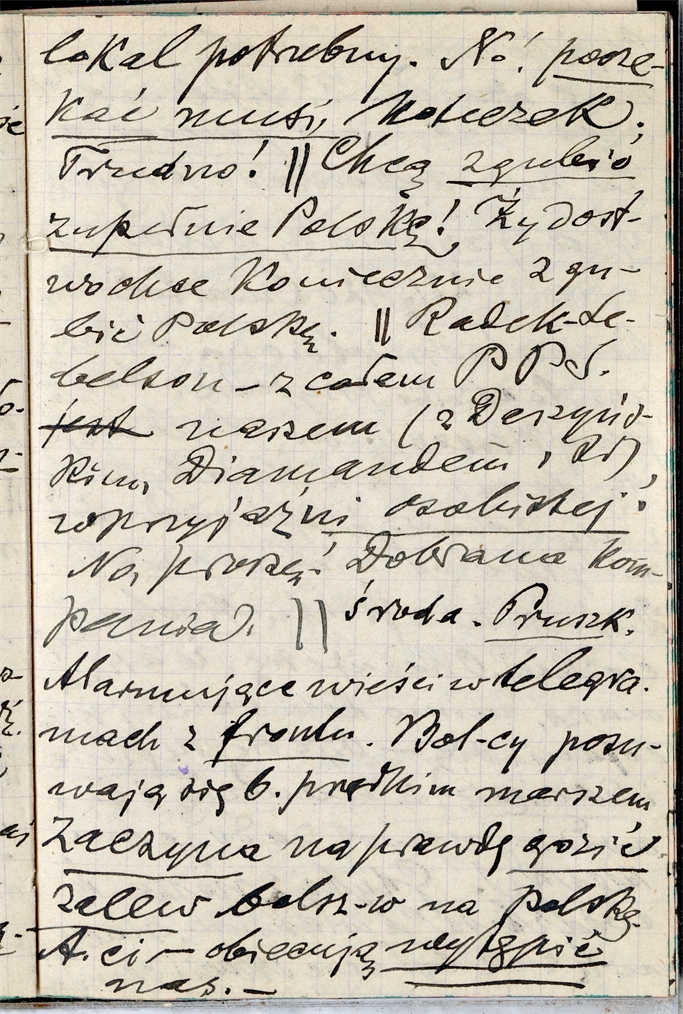 lokal potrzebny. No! pocze-
kać musi, Koteczek,
Trudno! || Chcą zgubić
zupełnie Polskę! Żydost-
wo chce koniecznie zgu-
bić Polskę. || Radek-So-
belson – z całem P P S.
jest naszem (z Daszyńs-
kim, Diamandem,
w przyjaźni osobistej!
No, proszę! Dobrana kom-
pania. || Środa. Pruszk.
Alarmujące wieści w telegra-
mach z frontu. Bol-cy posu-
wają się b. prędkim marszem
Zaczyna naprawdę grozić
zalew bolsz-w na Polskę.
A ci – obiecują wytępić
nas. –